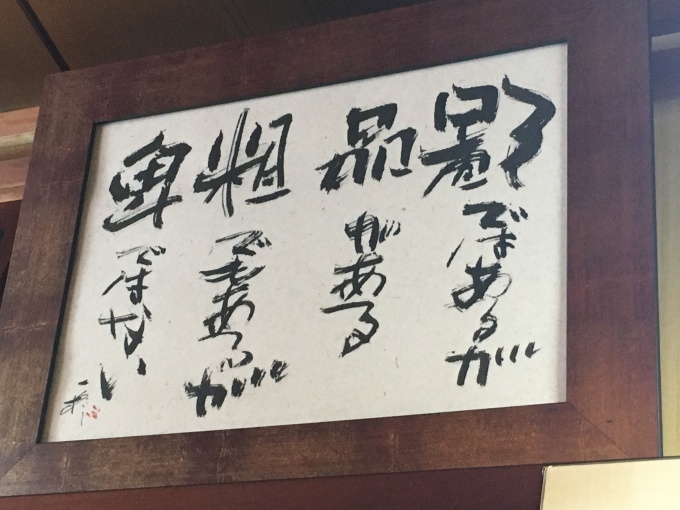 野ではあるが
品がある
粗でもあるが
卑ではない